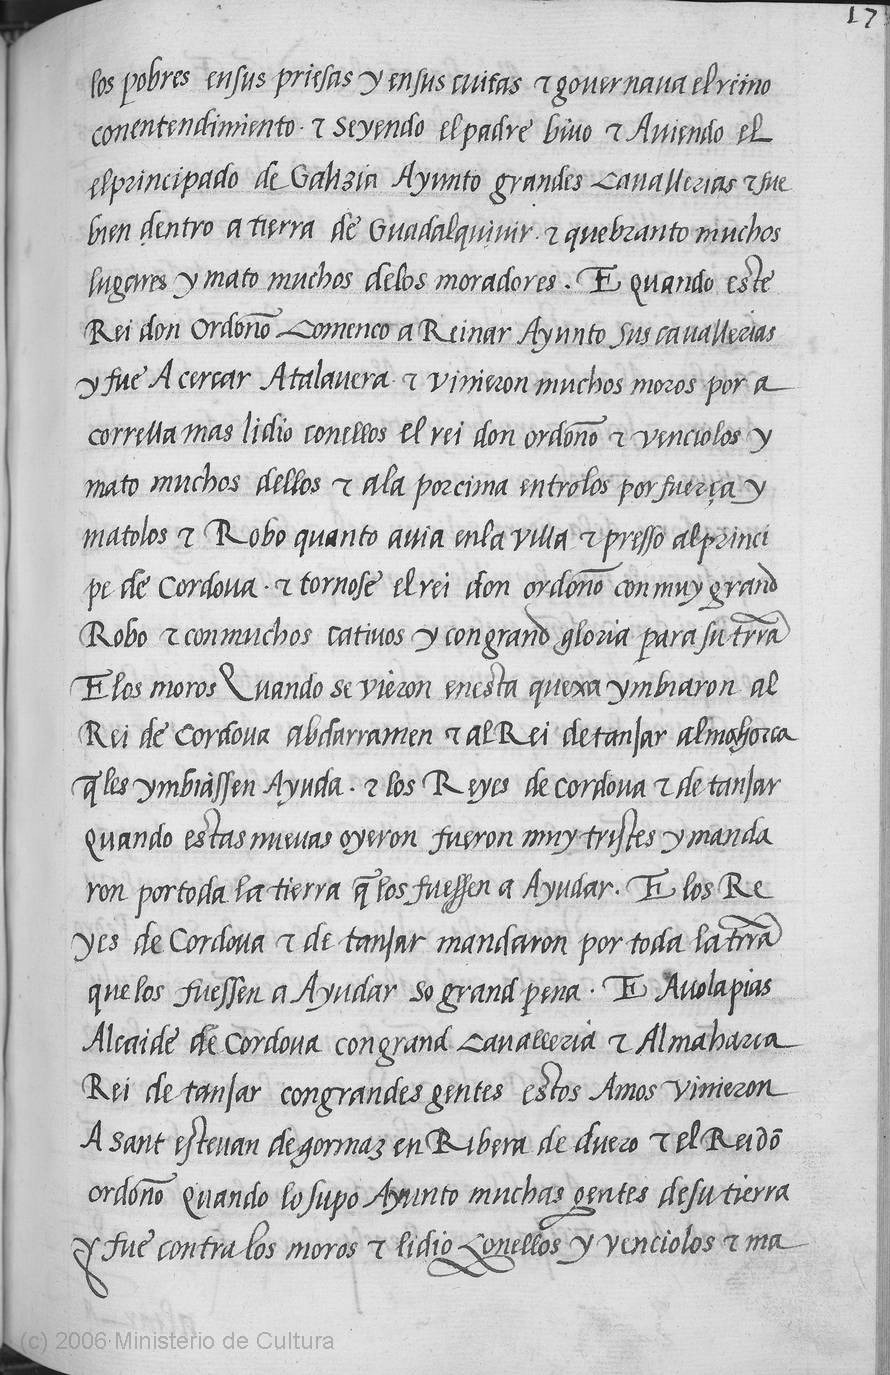 17
los pobres ensus priesas y ensus cuitas τ governava el reino
conentendimiento · τ seyendo el padre bivo τ Aviendo el
el principado de Galizia Ayunto grandes Cavallerias τ fue
bien dentro a tierra de Guadalquivir · τ quebranto muchos
lugares y mato muchos delos moradores . E quando este
Rei don Ordoño Comenco a Reinar Ayunto sus cavallerias
y fue A cercar Atalavera · τ vinieron muchos moros por a
corrella mas lidio conellos el rei don ordoño τ venciolos y
mato muchos dellos τ ala porcima entrolos por fuerça y
matolos τ Robo quanto avia enla villa τ presso al princi
pe de Cordova · τ tornose el rei don ordoño con muy grand
Robo τ conmuchos cativos y con grand gloria para su trra
E los moros Quando se vieron enesta quexa ymbiaron al
Rei de Cordova abdarramen τ al Rei de tanjar almahorca
q̃ les ymbiassen Ayuda . τ los Reyes de cordova τ de tanjar
quando estas nuevas oyeron fueron muy tristes y manda
ron por toda la tierra q̃ los fuessen a Ayudar . E los Re
yes de Cordova τ de tanjar mandaron por toda la trra
que los fuessen a Ayudar so grand pena . E Avolapias
Alcaide de Cordova con grand Cavalleria τ Almaharca
Rei de tanjar con grandes gentes estos Amos vinieron
A sant estevan de gormaz en Ribera de duero τ el Rei dõ
ordoño quando lo supo Ayunto muchas gentes de su tierra
y fue contra los moros τ lidio Conellos y venciolos τ ma
(c) 2006 Ministerio de Cultura